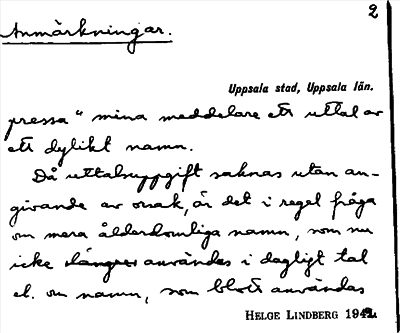 2
Anmärkningar.
Uppsala stad, Uppsala län.
pressa" mina meddelare ett uttal av
ett dylikt namn.
Då uttalsuppgift saknas utan an-
givande av orsak, är det i regel fråga
om mera ålderdomliga namn, som nu
icke längre användes i dagligt tal
el. om namn, som blott användas
HELGE LINDBERG 1942.